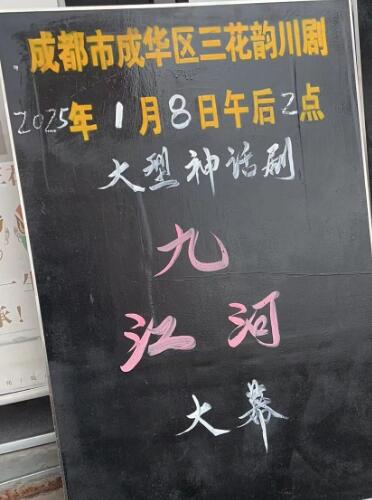 成都市成华区三花韵川剧
2025年1月8日午后2点
大型神话剧
九
江河
大幕